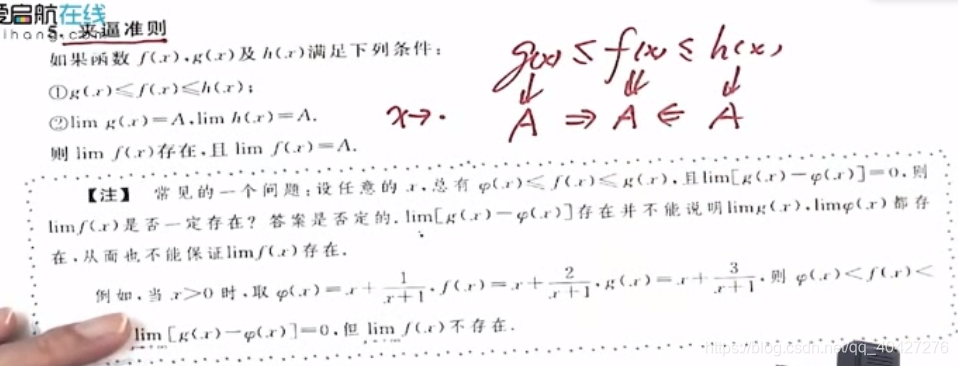 爱启航在线
5. 夹逼准则
如果函数 f(x),g(x)及 h(x)满足下列条件:
①g(x)≤f(x)≤h(x);
②lim g(x)=A,lim h(x)=A.
则 lim f(x)存在,且 lim f(x)=A.
g(x) ≤ f(x) ≤ h(x)
↓ ⇓ ↓
x→· A ⇒ A ⇐ A
【注】 常见的一个问题:设任意的 x,总有 φ(x)≤f(x)≤g(x),且lim[g(x)-φ(x)]=0,则
limf(x)是否一定存在?答案是否定的.lim[g(x)-φ(x)]存在并不能说明limg(x),limφ(x)都存
在,从而也不能保证limf(x)存在.
例如,当 x>0 时,取 φ(x)=x+1/(x+1),f(x)=x+2/(x+1),g(x)=x+3/(x+1),则 φ(x)<f(x)<
lim[g(x)-φ(x)]=0,但 lim f(x)不存在.
https://blog.csdn.net/qq_40427276